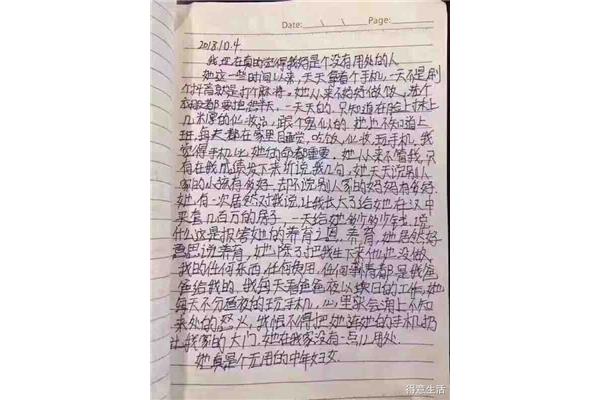 Date: \ \ Page:
2018.10.4.
我现在真的觉得我妈是个没有用处的人
她这一些时间以来,天天拿着个手机,一天不是刷
个抖音就是打个麻将。她从来不好好做饭,洗个
都要抱怨半天,一天天的,只知道在脸上抹上
几米厚的化妆品,跟个鬼似的,她也不知道上
班,每天都在家里睡觉,吃饭,化妆,玩手机,我
觉得手机比她的命都重要。她从来不管我,只
有在我成绩发下来价说我几句,她天天说别人
家的小孩有多好,却不说别人家的妈妈有多好。
她有一次居然对我说,让我长大了给她在汉中
买套几百万的房子,一天给她多少多少钱,说
什么这是报答她的养育之恩,养育,她居然好
意思说养育,她除了把我生下来什么也没做,
我的任何东西,任何费用,任何事情都是我爸
爸给我的,我每天看爸爸夜以继日的工作,她
每天不分昼夜的玩手机,心里就会涌上不知
来处的怒火,我恨不得把她连她的手机扔
出我家的大门,她在我家没有一点儿用处.
她真是个无用的中年妇女
得意生活